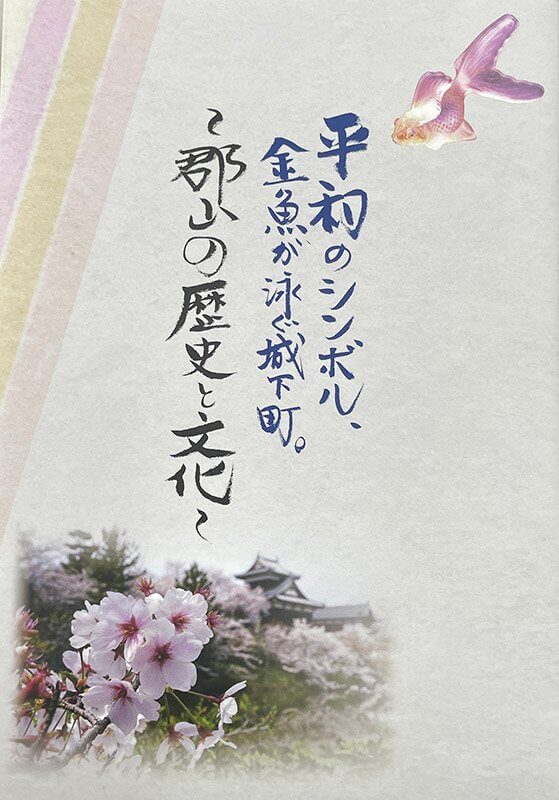 平和のシンボル、
金魚が泳ぐ城下町。
〜郡山の歴史と文化〜